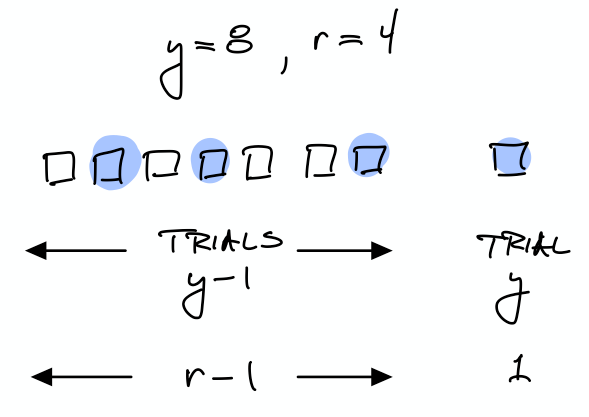 y = 8 , r = 4
TRIALS TRIAL
y - 1 y
r - 1 1